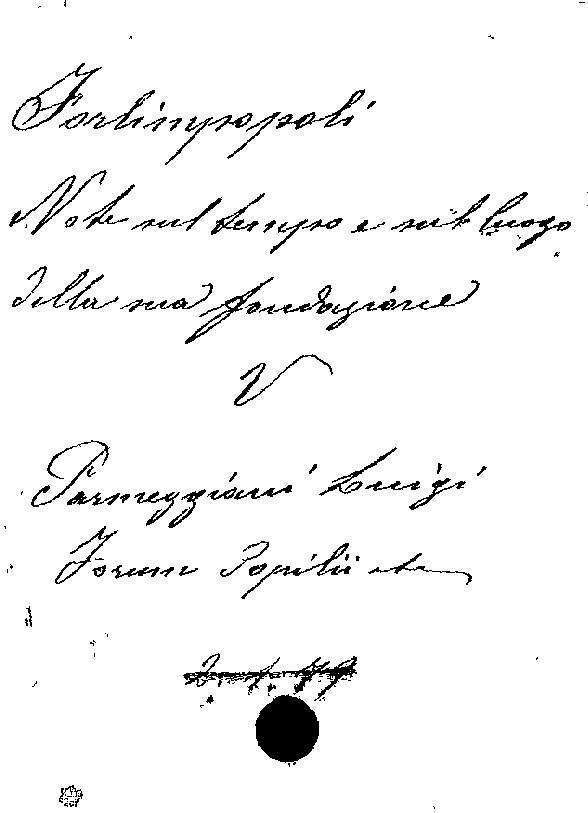 Forlimpopoli
Note sul tempo e sul luogo
della sua fondazione
V
Parmeggiani Luigi
Forum Popilii etc